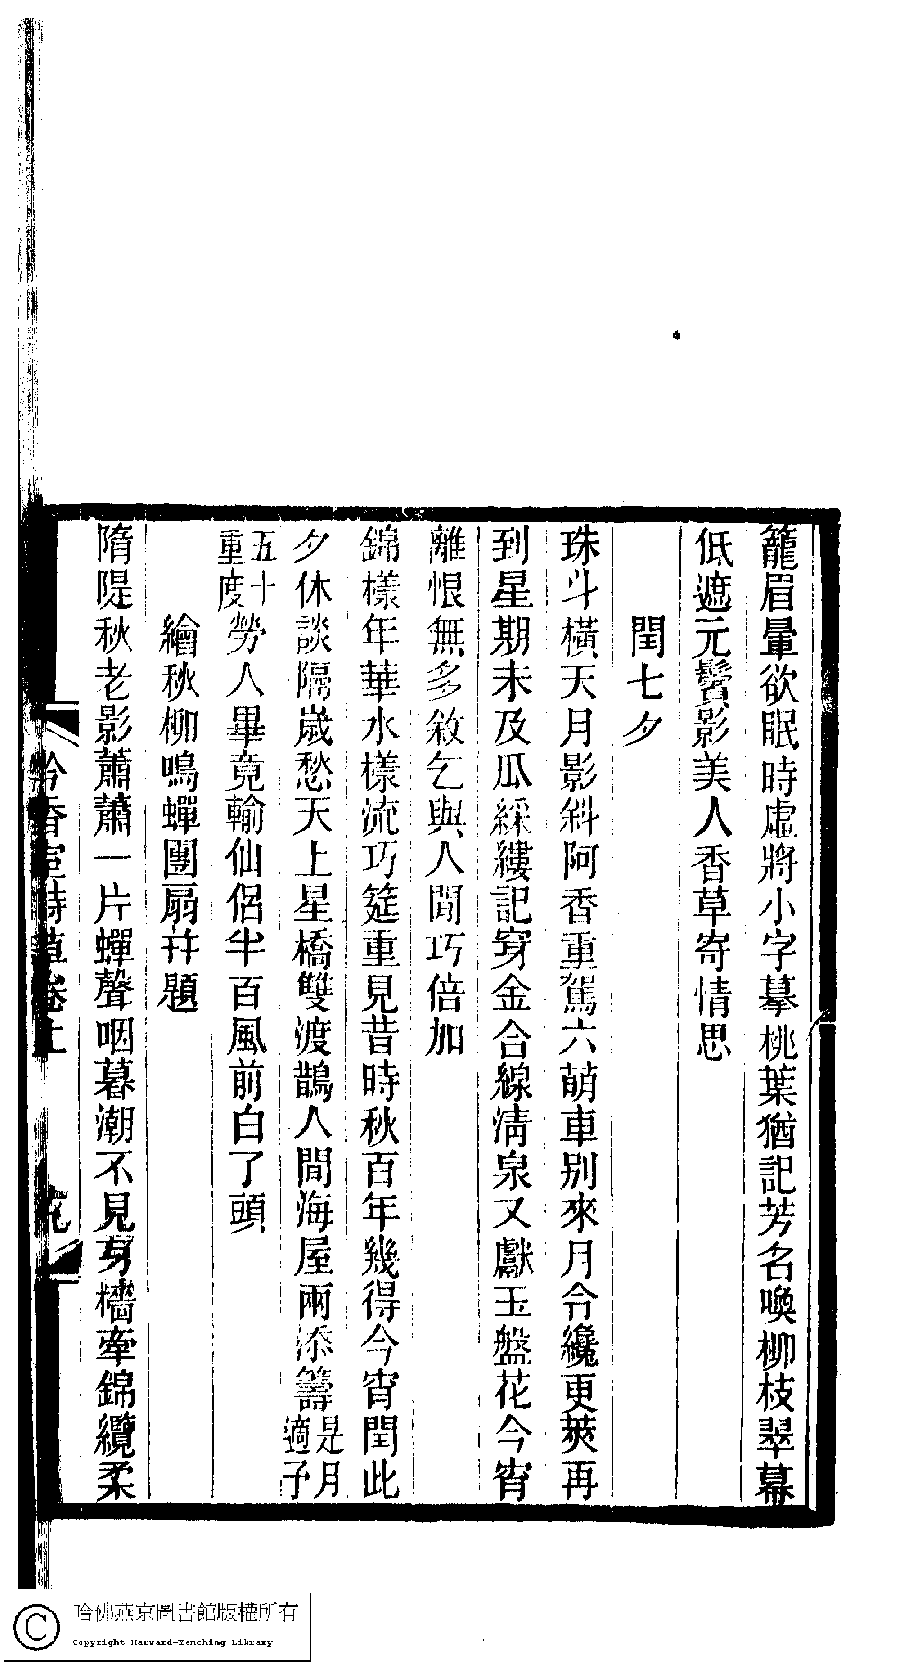 籠眉暈欲眠時虛將小字摹桃葉猶記芳名喚柳枝翠幕
低遮元鬢影美人香草寄情思
閏七夕
珠斗橫天月影斜阿香重駕六萌車别來月令纔更莢再
到星期未及瓜綵縷記穿金合線清泉又獻玉盤花今宵
離恨無多敘乞與人閒巧倍加
錦樣年華水樣流巧筵重見昔時秋百年幾得今宵閏此
夕休談隔歲愁天上星橋雙渡鵲人間海屋兩添籌是月適子
五十重度勞人畢竟輸仙侶半百風前白了頭
繪秋柳鳴蟬團扇幷題
隋隄秋老影蕭蕭一片蟬聲咽暮潮不見牙檣牽錦纜柔
冷香室詩草卷上
哈佛燕京圖書館版權所有
Copyright Harvard-Yenching Library